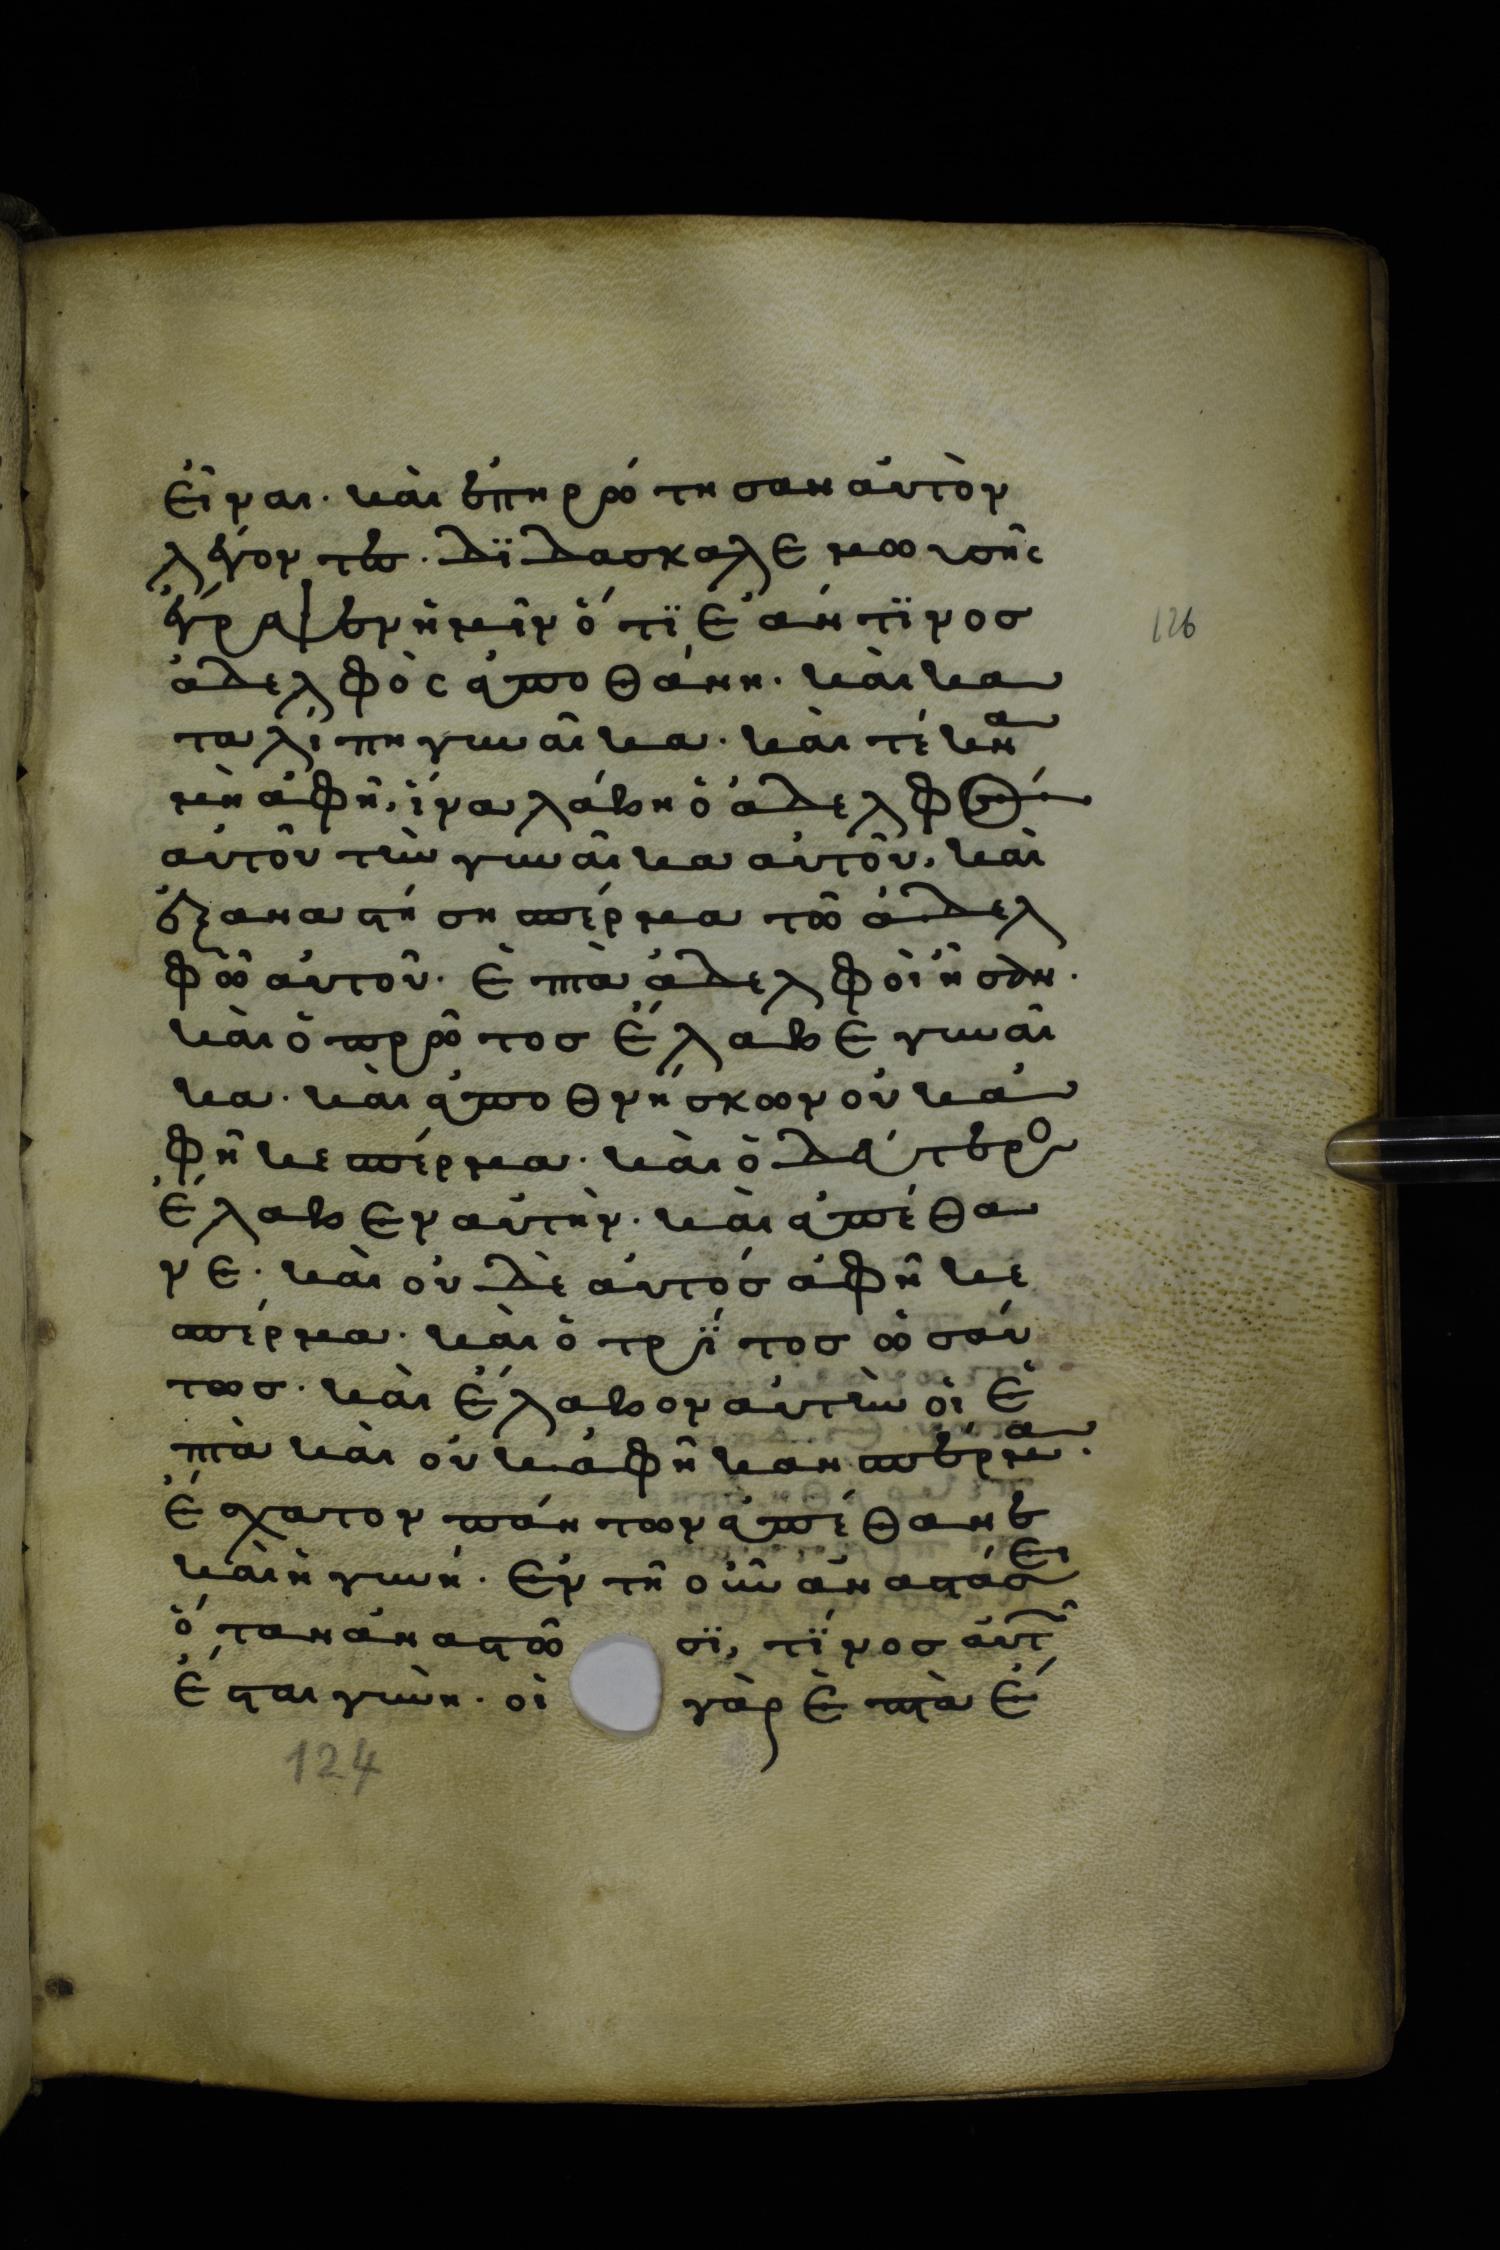 εἶναι· καὶ ἐπηρώτησαν αὐτὸν
λέγοντες· διδάσκαλε μωυσῆς
ἔγραψεν ἡμῖν ὅτϊ ἐάν τϊνος
ἀδελφὸς ἀποθάνη· καὶ κα
ταλίπη γυναῖκα· καὶ τέκνα
μὴ ἀφῆ, ἵνα λάβη ὁ ἀδελφὸς
αὐτοῦ τὴν γυναῖκα αὐτοῦ, καὶ
ἐξαναστήση σπέρμα τῶ ἀδελ
φῶ αὐτοῦ· ἑπτὰ ἀδελφοὶ ἦσαν·
καὶ ὁ πρῶτος ἔλαβε γυναῖ
κα· καὶ ἀποθνήσκων οὐκ ἀ
φῆκε σπέρμα· καὶ ὁ δεύτερος
ἔλαβεν αὐτὴν· καὶ ἀπέθα
νε· καὶ οὐδὲ αὐτός ἀφῆκε
σπέρμα· καὶ ὁ τρίτος ὡσαύ
τως· καὶ ἔλαβον αὐτὴν οἱ ἑ
πτὰ καὶ οὐκ ἀφῆκαν σπέρμα·
ἔσχατον πάντων ἀπέθανε
καὶ ἡ γυνή· ἐν τῆ οὖν ἀναστάσει
ὅταν ἀναστῶσϊ, τΐνος αὐτῶ
ἔσται γυνὴ· οἱ γὰρ ἑπτὰ ἔ
124
126